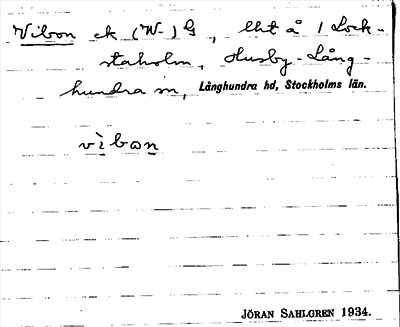 Vibon ck (W-) G, lht å 1 Lock-
staholm, Husby-Lång-
hundra sn, Långhundra hd, Stockholms län.
vibon
JÖRAN SAHLGREN 1934.